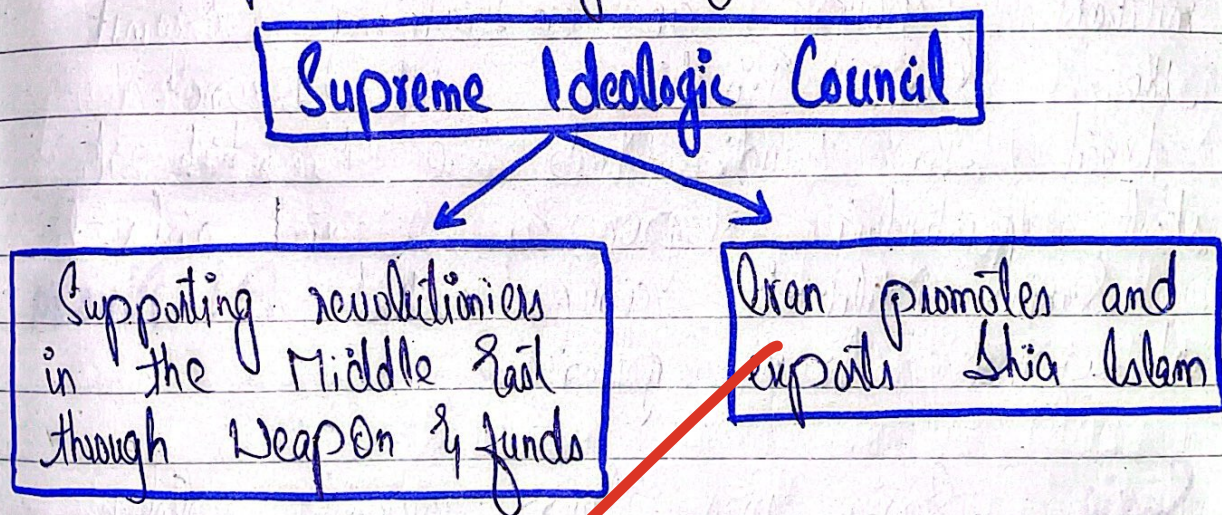 Supreme Ideologic Council
Supporting revolutioniers
in the Middle East
through Weapon & funds
Iran promotes and
exports Shia Islam